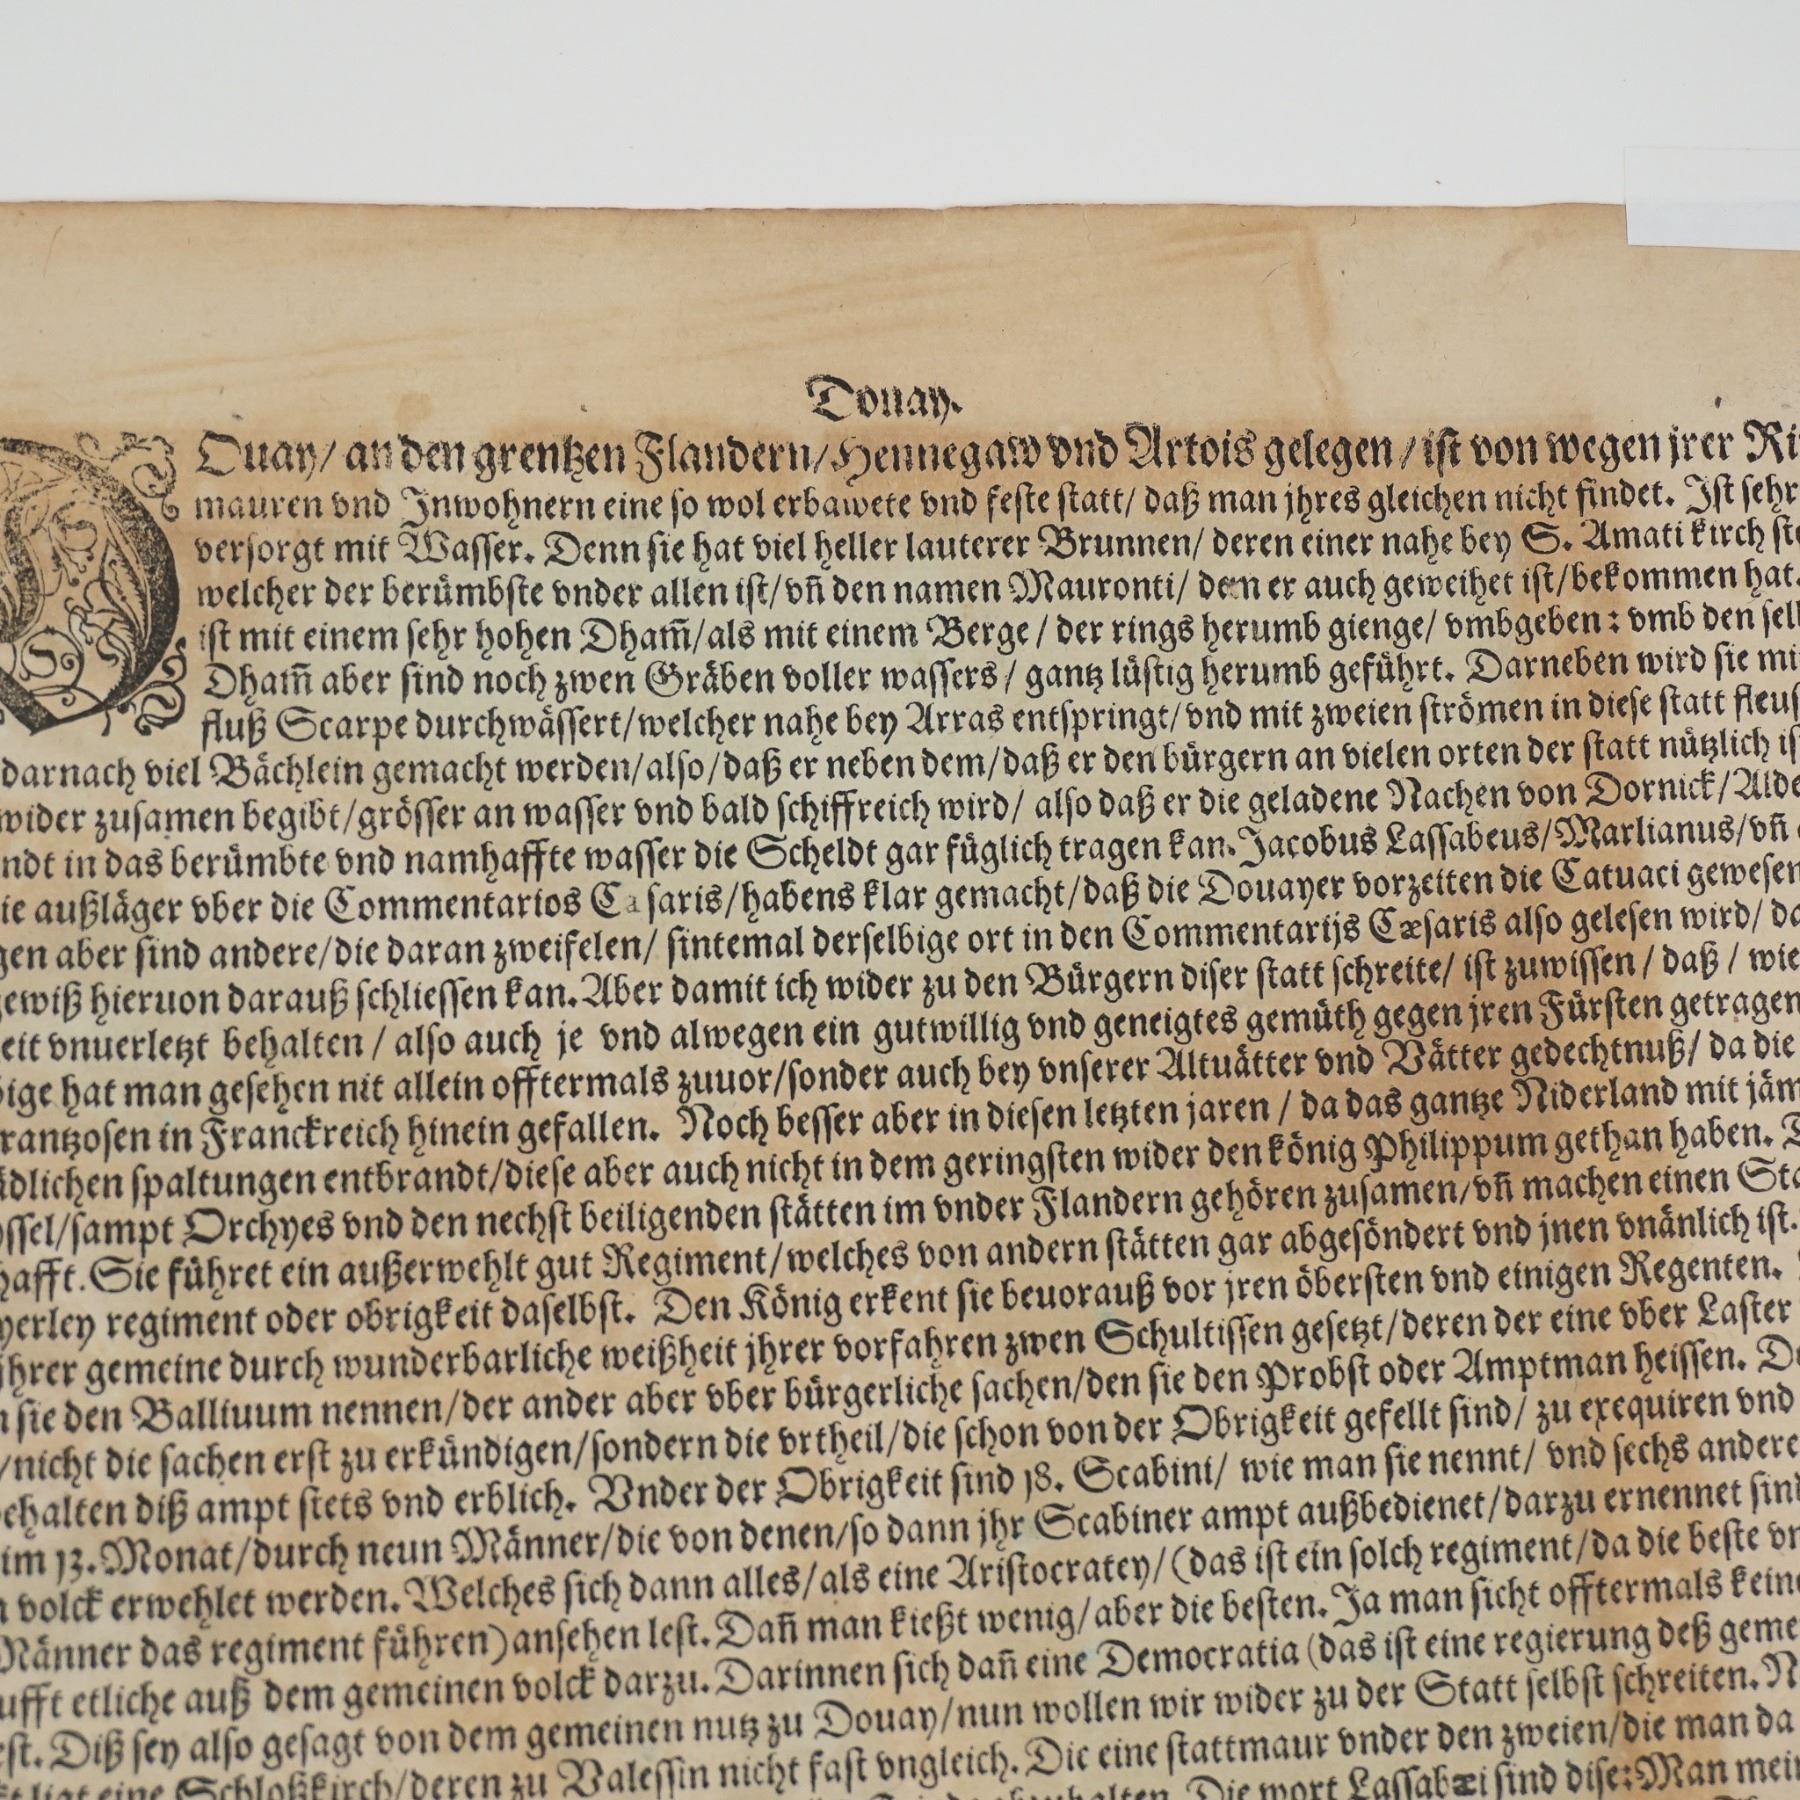 Douay.
DOuay/ an den grentzen Flandern/Hennegaw vnd Artois gelegen/ist von wegen jrer
mauren vnd Jnwohnern eine so wol erbawete vnd feste statt/ daß man jhres gleichen nicht findet. Jst sehr
versorgt mit Wasser. Denn sie hat viel heller lauterer Brunnen/ deren einer nahe bey S. Amati kirch
welcher der berümbste vnder allen ist/vñ den namen Mauronti/ dem er auch geweihet ist/bekommen hat.
ist mit einem sehr hohen Dham̄/als mit einem Berge/ der rings herumb gienge/ vmbgeben: vmb den
Dham̄ aber sind noch zwen Gräben voller wassers/ gantz lüstig herumb geführt. Darneben wird sie
fluß Scarpe durchwässert/welcher nahe bey Arras entspringt/vnd mit zweien strömen in diese statt
darnach viel Bächlein gemacht werden/also/daß er neben dem/daß er den bürgern an vielen orten der statt nützlich
wider zusamen begibt/grösser an wasser vnd bald schiffreich wird/ also daß er die geladene Nachen von Dornick/
in das berümbte vnd namhaffte wasser die Scheldt gar füglich tragen kan. Jacobus Lassabeus/Marlianus/vñ
außläger vber die Commentarios Cæsaris/habens klar gemacht/daß die Douayer vorzeiten die Catuaci gewesen
aber sind andere/die daran zweifelen/ sintemal derselbige ort in den Commentarijs Cæsaris also gelesen wird/
hieruon darauß schliessen kan. Aber damit ich wider zu den Bürgern diser statt schreite/ ist zuwissen/ daß/ wie
vnuerletzt behalten/ also auch je vnd alwegen ein gutwillig vnd geneigtes gemüth gegen jren Fürsten getragen
hat man gesehen nit allein offtermals zuuor/sonder auch bey vnserer Altuätter vnd Vätter gedechtnuß/ da die
rantzosen in Franckreich hinein gefallen. Noch besser aber in diesen letzten jaren/ da das gantze Niderland mit
spaltungen entbrandt/diese aber auch nicht in dem geringsten wider den könig Philippum gethan haben.
ssel/sampt Orchyes vnd den nechst beiligenden stätten im vnder Flandern gehören zusamen/vñ machen einen
hafft. Sie führet ein außerwehlt gut Regiment/welches von andern stätten gar abgesöndert vnd jnen vnänlich ist.
yerley regiment oder obrigkeit daselbst. Den König erkent sie beuorauß vor jren öbersten vnd einigen Regenten.
jhrer gemeine durch wunderbarliche weißheit jhrer vorfahren zwen Schultissen gesetzt/deren der eine vber Laster
sie den Balliuum nennen/der ander aber vber bürgerliche sachen/den sie den Probst oder Amptman heissen.
/nicht die sachen erst zu erkündigen/sondern die vrtheil/die schon von der Obrigkeit gefellt sind/ zu exequiren vnd
behalten diß ampt stets vnd erblich. Vnder der Obrigkeit sind 18. Scabini/ wie man sie nennt/ vnd sechs andere
im 13. Monat/durch neun Männer/die von denen/so dann jhr Scabiner ampt außbedienet/darzu ernennet sind
volck erwehlet werden. Welches sich dann alles/als eine Aristocratey/(das ist ein solch regiment/da die beste
Männer das regiment führen)ansehen lest. Dañ man kießt wenig/aber die besten. Ja man sicht offtermals
etliche auß dem gemeinen volck darzu. Darinnen sich dañ eine Democratia (das ist eine regierung deß
Diß sey also gesagt von dem gemeinen nutz zu Douay/nun wollen wir wider zu der Statt selbst schreiten.
ligt eine Schloßkirch/deren zu Valessin nicht fast vngleich. Die eine stattmaur vnder den zweien/die man da
Die wort Lassabæi sind dise: Man